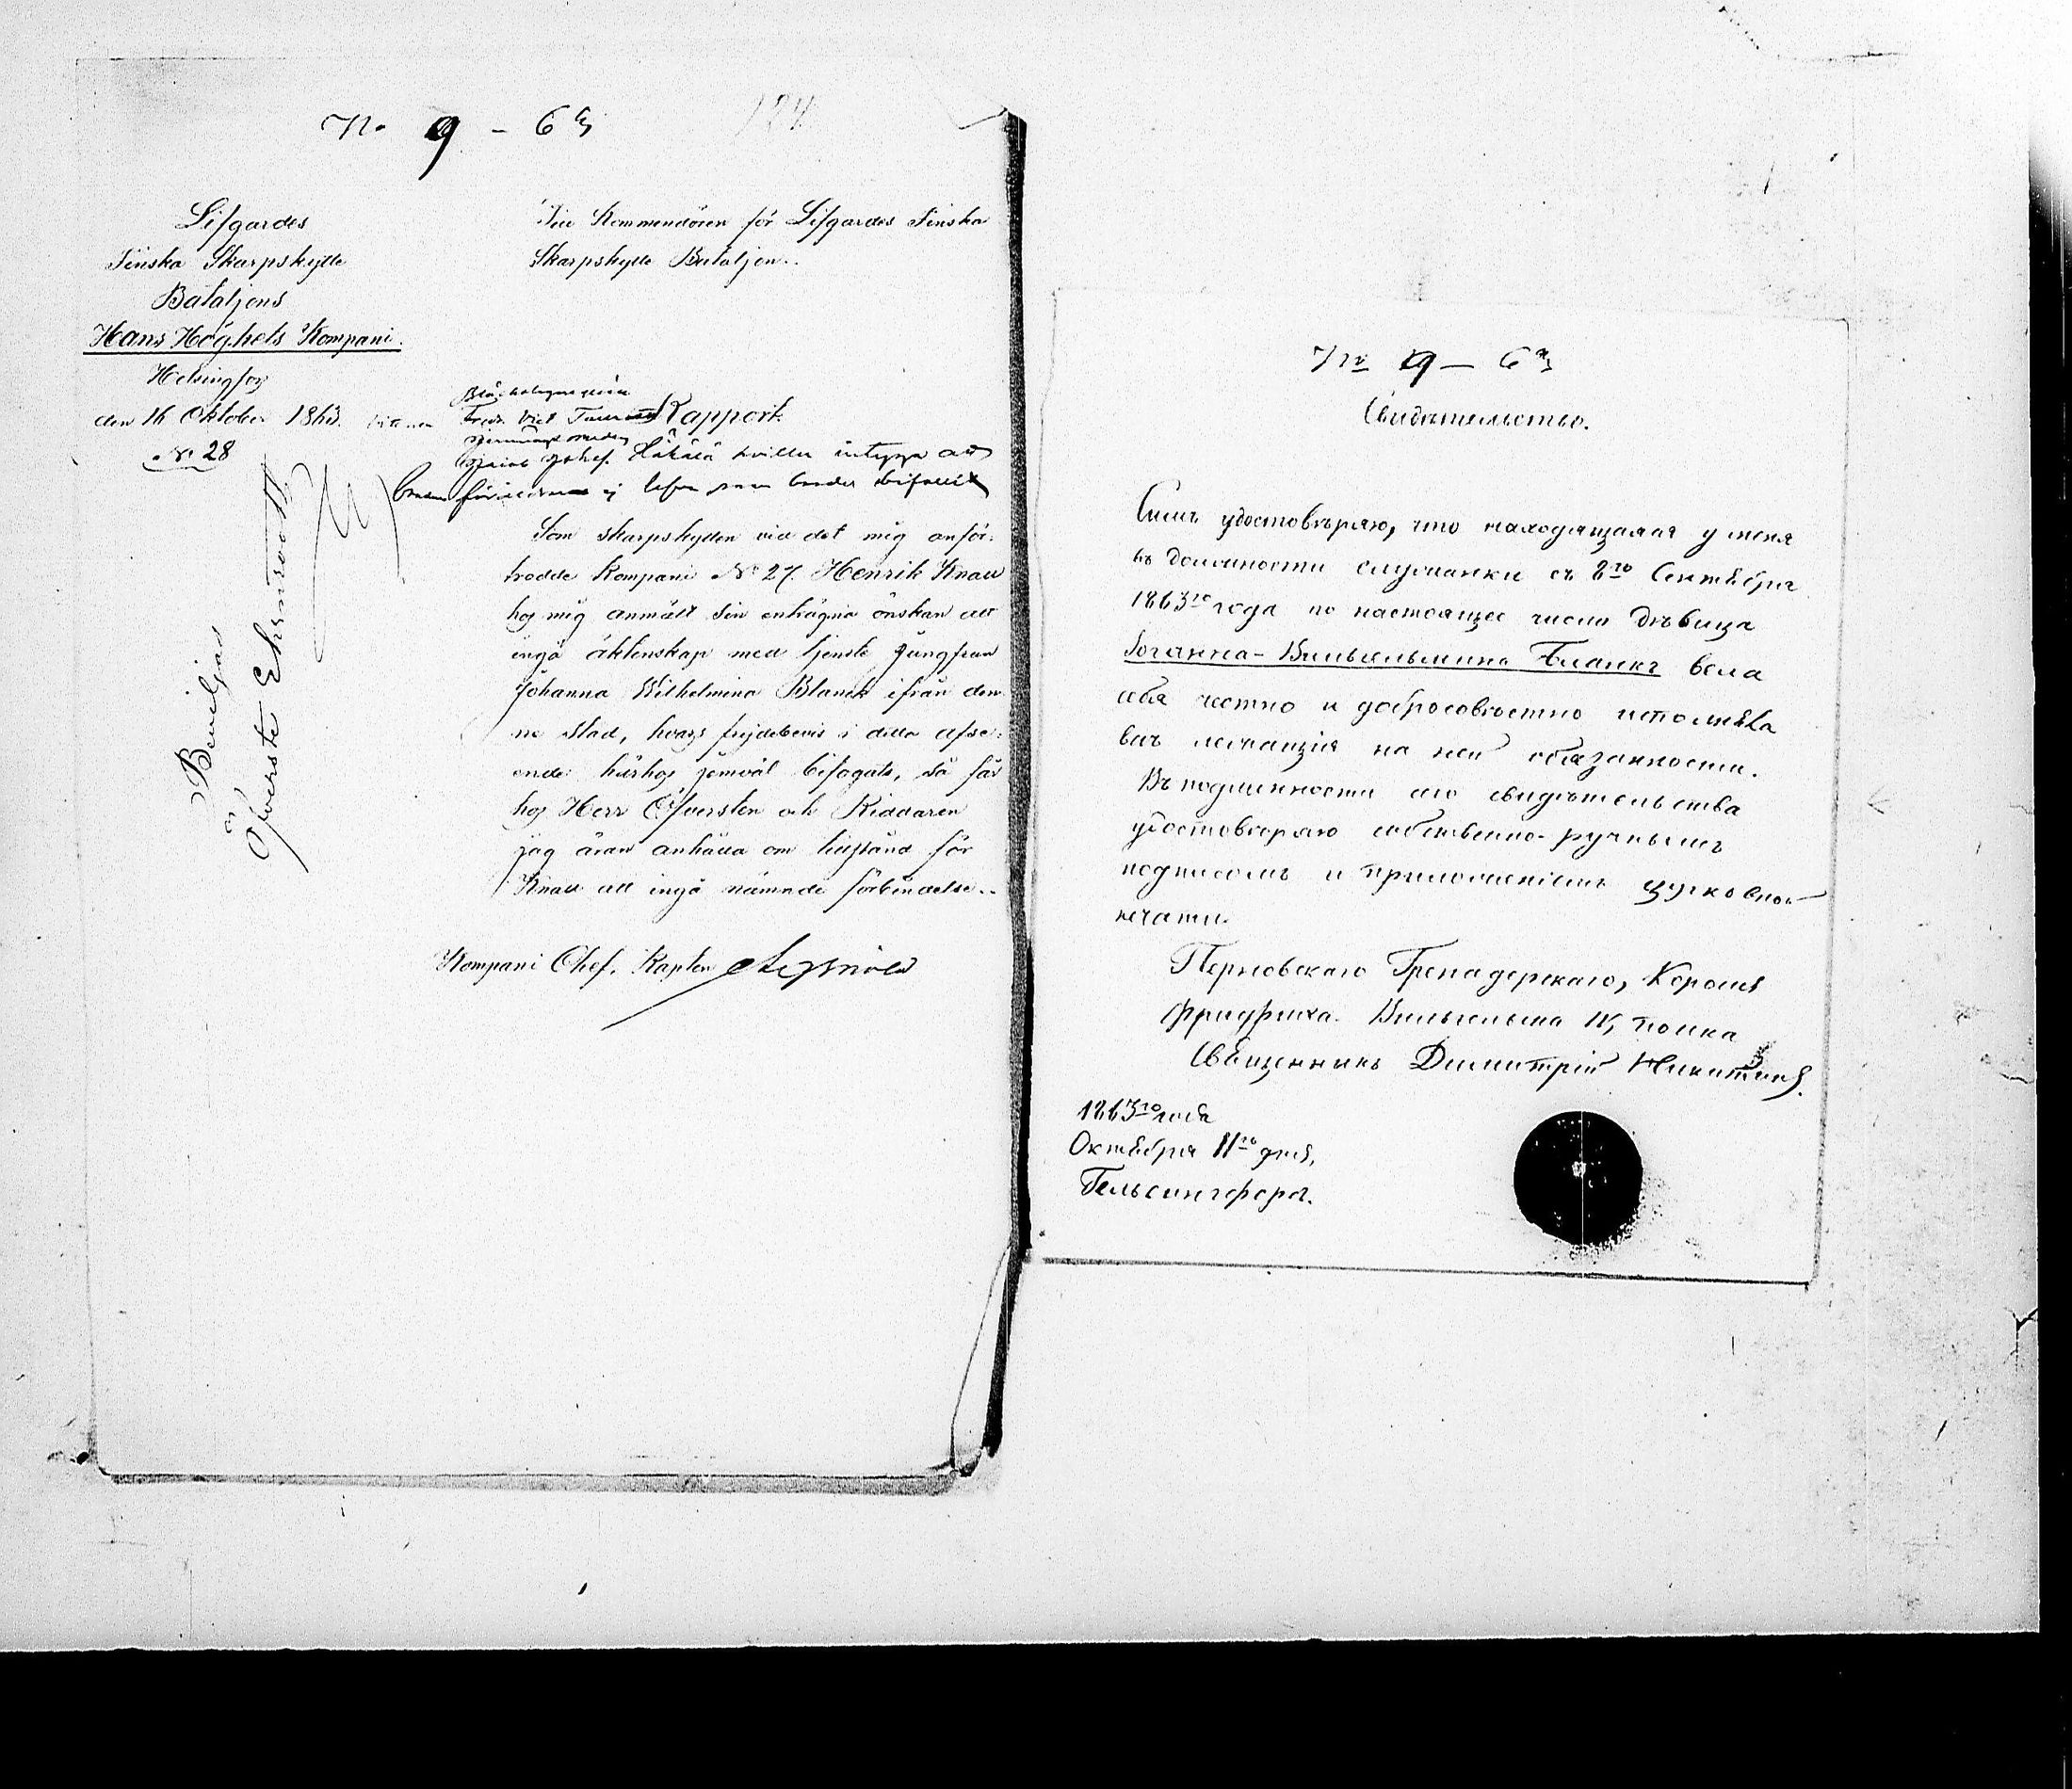 No 9 - 63
124
Lifgardes
Finska Skarpskytte
Bataljons
Hans Höghets Kompani.
Helsingfors
den 16 Oktober 1863.
No 28
Till Kommendören för Lifgardes Finska
Skarpskytte Bataljon.
Rapport.
hvilka intyga att
Som skarpskytten vid det mig anför-
trodde Kompani No 27. Henrik Knall
hos mig anmält sin enträgna önskan att
ingå äktenskap med tjenste jungfrun
Johanna Wilhelmina Blanck ifrån den-
na stad, hvars frejdebevis i detta afse-
ende härhos jemväl bifogats, så får
hos Herr Öfversten och Riddaren
jag äran anhålla om tillstånd för
Knall att ingå nämnde förbindelse.
Kompani Chef, Kapten
Beviljas
Öfverste Ehrnrooth
No 9 — 63
Свидѣтельство.
Симъ удостовѣряю, что находящаяся у меня
въ должности служанки съ 8го Сентября
1863го года по настоящее число дѣвица
Іоганна-Вильгельмина Бланкъ вела
себя честно и добросовѣстно исполняла
всѣ лежащія на ней обязанности.
Въ подлинности сего свидѣтельства
удостовѣряю собственно-ручнымъ
подписомъ и приложеніемъ церковной
печати.
Перновскаго Гренадерскаго, Короля
Фридриха-Вильгельма IV, полка
Священникъ Димитрій Никитинъ.
1863го года
Октября 11го дня,
Гельсингфорсъ.